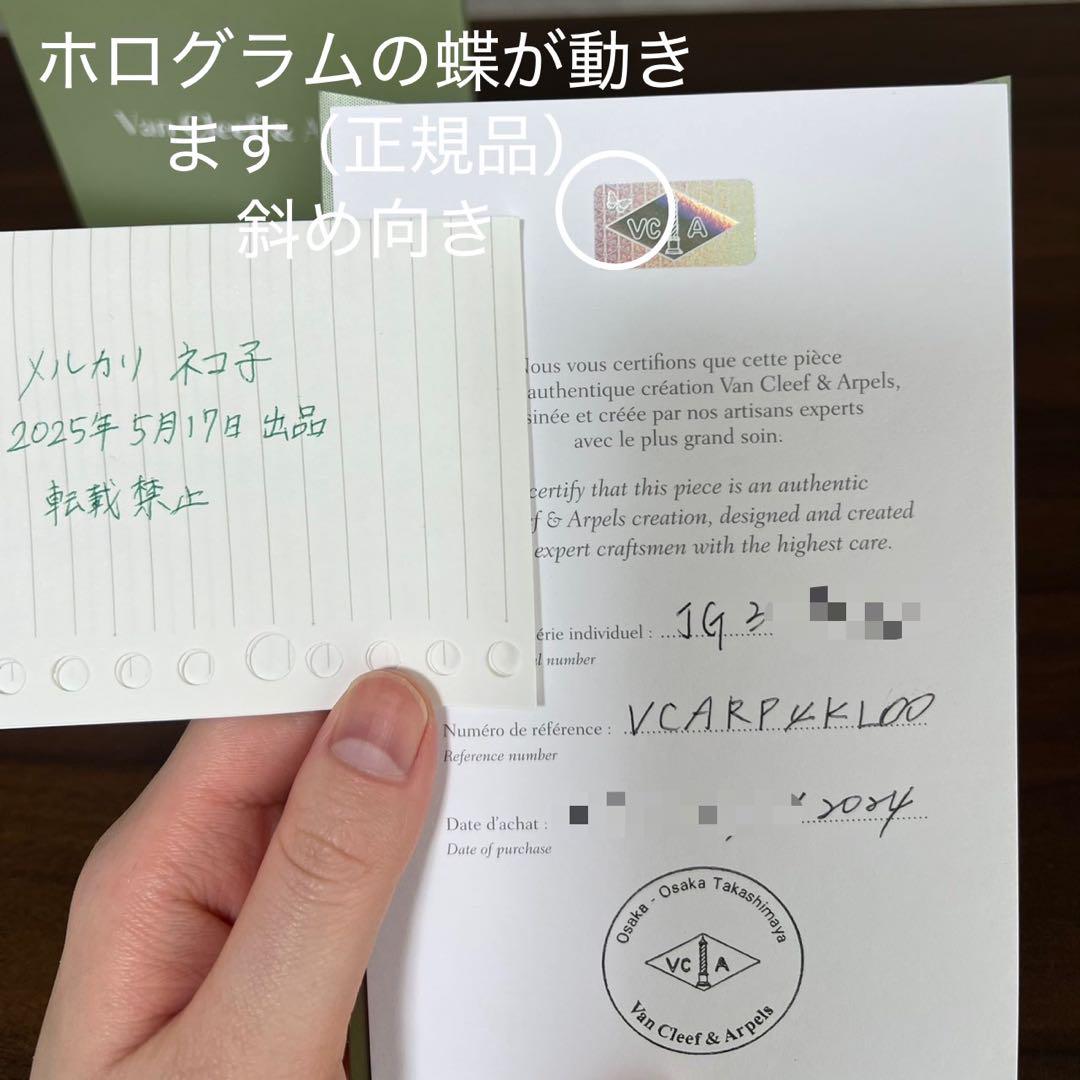 ホログラムの蝶が動き
ます（正規品）
斜め向き
Van Cleef & A
VC A
メルカリ ネコ子
2025年5月17日 出品
転載禁止
Nous vous certifions que cette pièce
authentique création Van Cleef & Arpels,
sinée et créée par nos artisans experts
avec le plus grand soin.
certify that this piece is an authentic
f & Arpels creation, designed and created
expert craftsmen with the highest care.
érie individuel : JG 3
l number
Numéro de référence : VCARP4KL00
Reference number
Date d'achat : 2024
Date of purchase
Osaka - Osaka Takashimaya
VC A
Van Cleef & Arpels